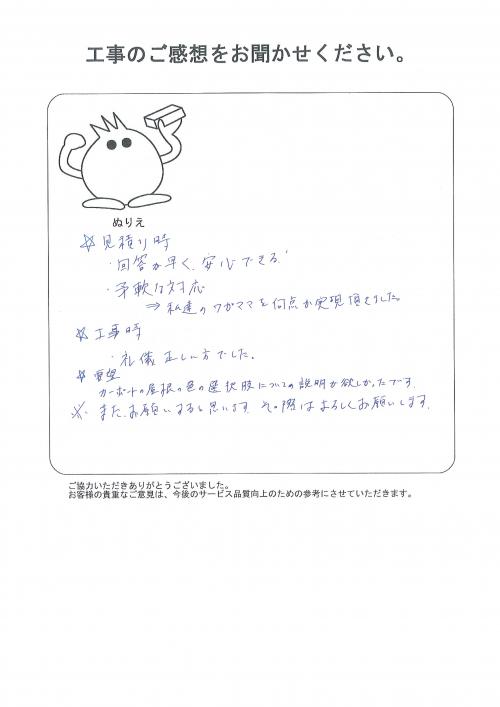 工事のご感想をお聞かせください。
ぬりえ
☆見積り時
・回答が早く、安心できる。
・予軟な対応
⇒ 私達のワガママを何点か実現頂きました。
☆工事時
・礼儀正しい方でした。
☆要望
カーポートの屋根の色の選択肢についての説明が欲しかったです。
※ また、お願いすると思います。その際はよろしくお願いします。
ご協力いただきありがとうございました。
お客様の貴重なご意見は、今後のサービス品質向上のための参考にさせていただきます。